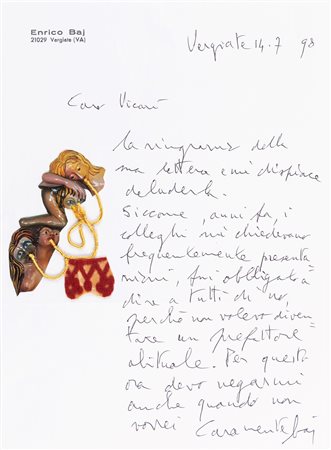 Enrico Baj
21029 Vergiate (VA)
Vergiate 14.7 98
Caro Vicari
la ringrazio della
sua lettera e mi dispiace
deluderla.
Siccome, anni fa, i
colleghi mi chiedevano
frequentemente presenta
zioni, fui obbligato a
dire a tutti di no,
perché non volevo diven
tare un prefattore
abituale. Per questo
ora devo negarmi
anche quando non
vorrei Caramente Baj